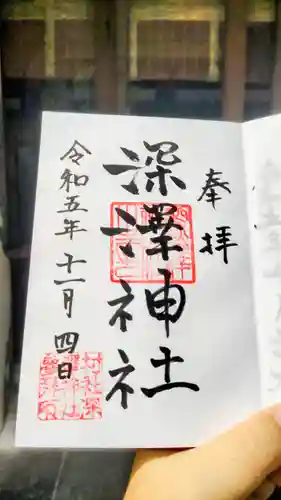 奉拝
深澤神社
令和五年十一月四日